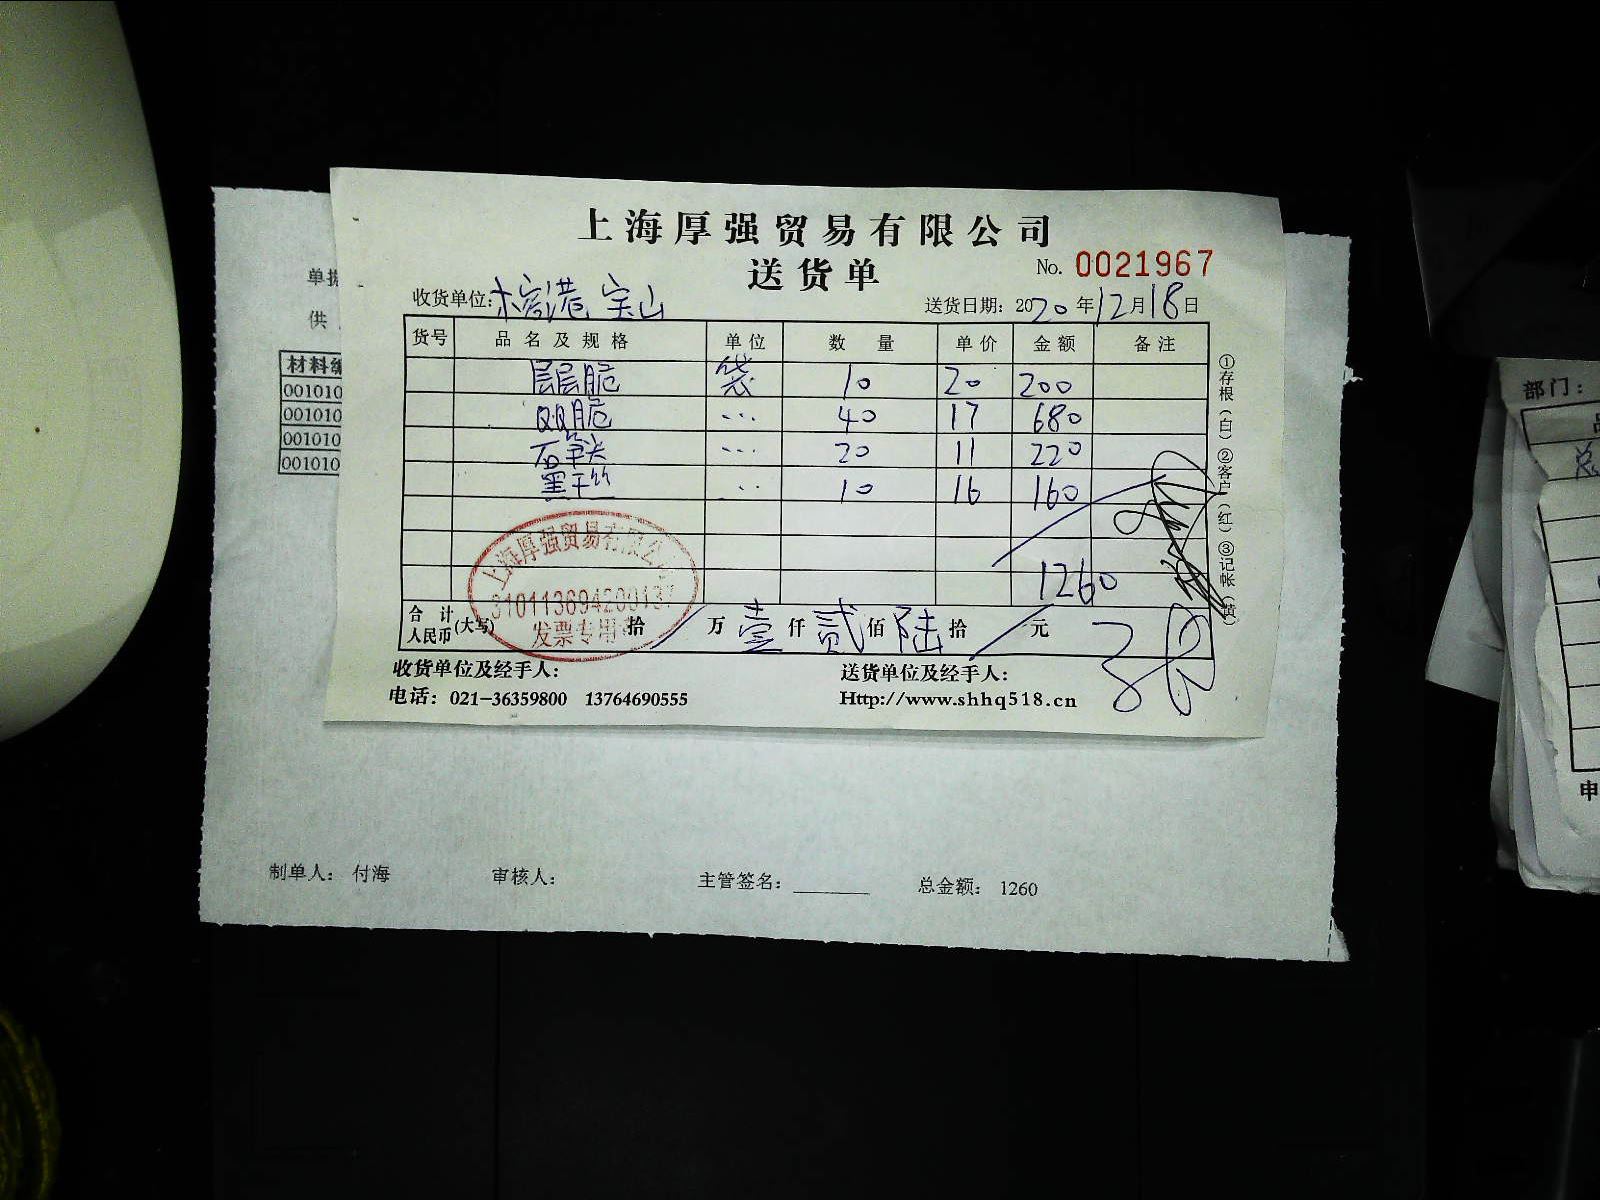 上海厚强贸易有限公司
送货单
No. 0021967
收货单位: 榕港 宝山
送货日期: 2020年12月18日
货号 品名及规格 单位 数量 单价 金额 备注
层层脆 袋 10 20 200
QQ脆 ... 40 17 680
石笋尖 ... 20 11 220
黑千丝 .. 10 16 160
1260
合计人民币(大写) 拾 万 壹 仟 贰 佰 陆 拾 元
上海厚强贸易有限公司
发票专用
收货单位及经手人:
送货单位及经手人:
电话: 021-36359800 13764690555
Http://www.shhq518.cn
①存根(白)②客户(红)③记帐(黄)
单据
供
材料编
001010
001010
001010
001010
制单人: 付海 审核人: 主管签名: 总金额: 1260
部门:
申